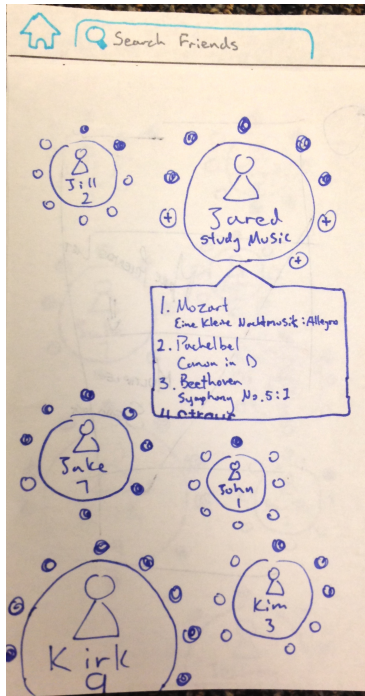 Search Friends
Jill
2
Jared
Study Music
1. Mozart
Eine Kleine Nachtmusik: Allegro
2. Pachelbel
Canon in D
3. Beethoven
Symphony No. 5: I
Jake
7
John
1
Kim
3
Kirk
9